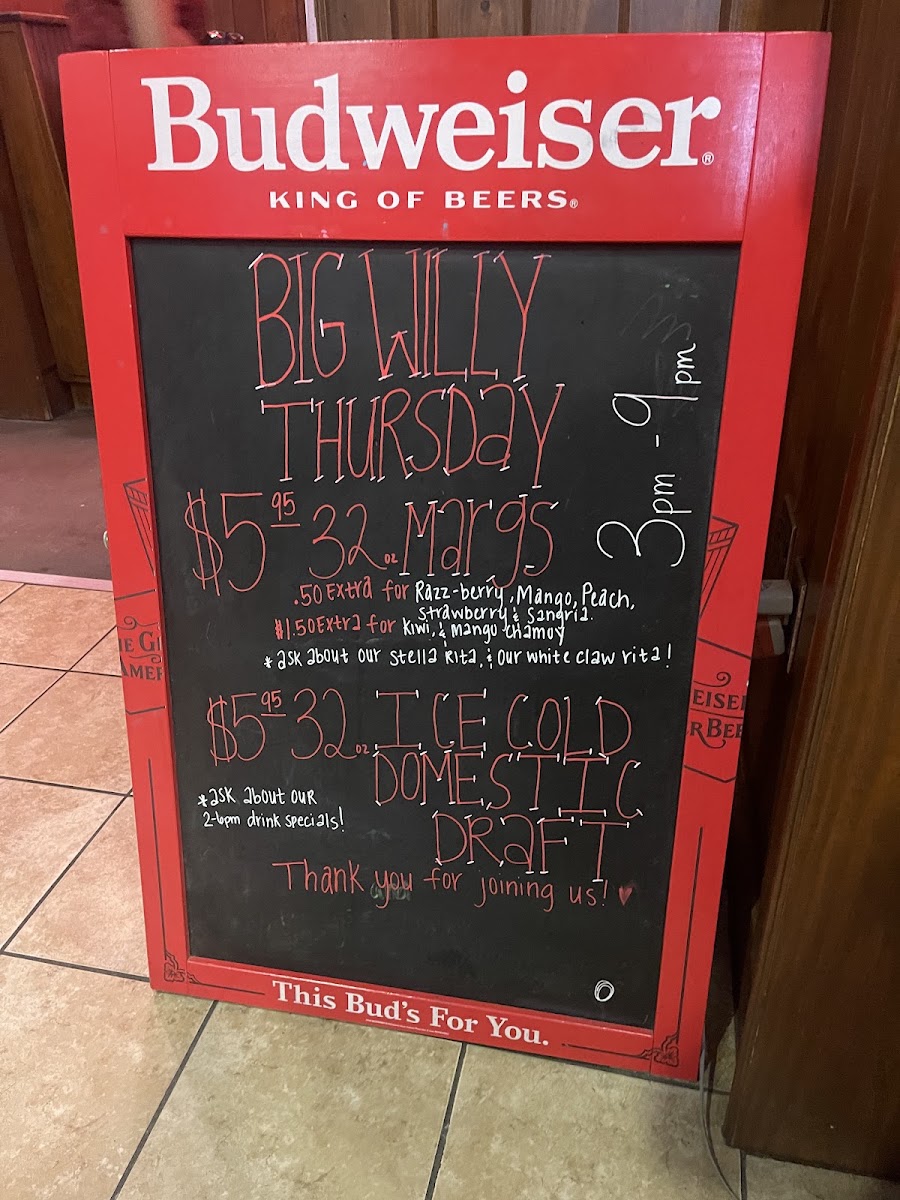 Budweiser®
KING OF BEERS®
BIG WILLY
THURSDay
3pm - 9pm
$5.95 32oz Margs
.50 Extra for Razz-berry, Mango, Peach,
Strawberry & Sangria.
$1.50 Extra for Kiwi, & Mango chamoy
*ask about our Stella Rita, & our white claw rita!
$5.95 32oz ICE COLD
DOMESTIC
DRaFT
*ask about our
2-6pm drink specials!
Thank you for joining us!
This Bud's For You.